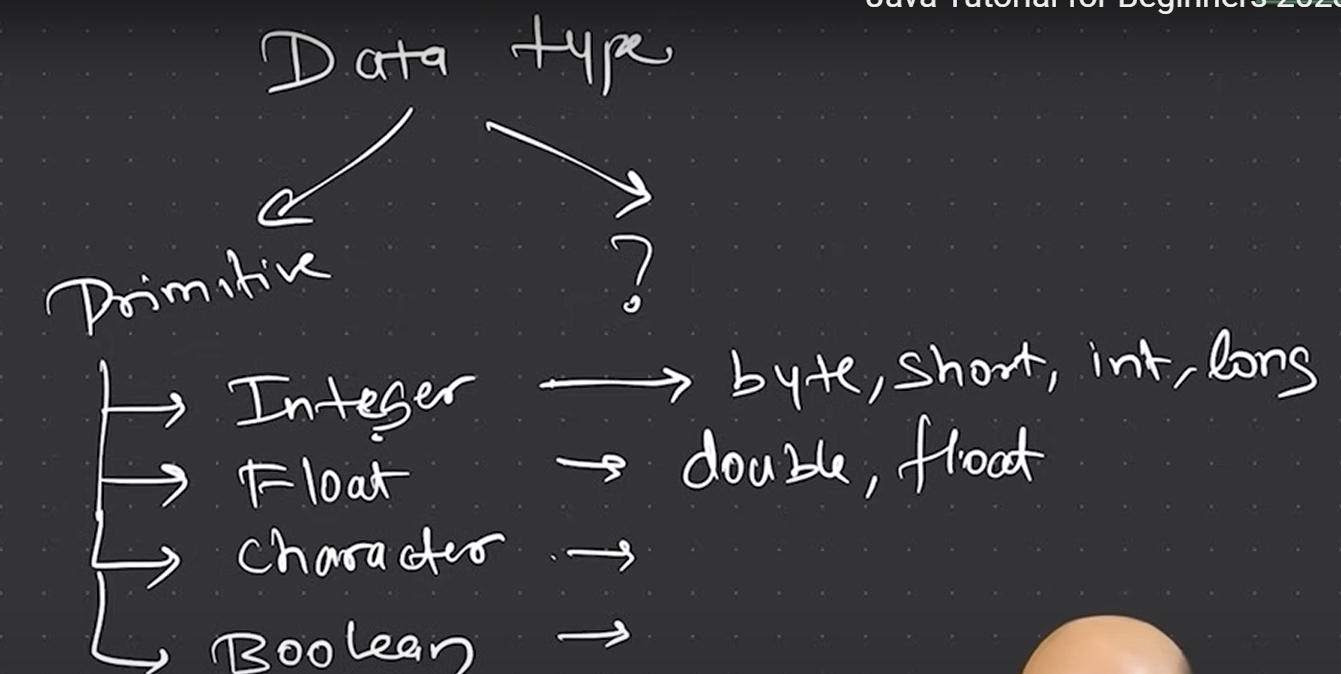 Java Tutorial for Beginners 2025
Data type
Primitive
?
Integer → byte, short, int, long
Float → double, float
Character →
Boolean →